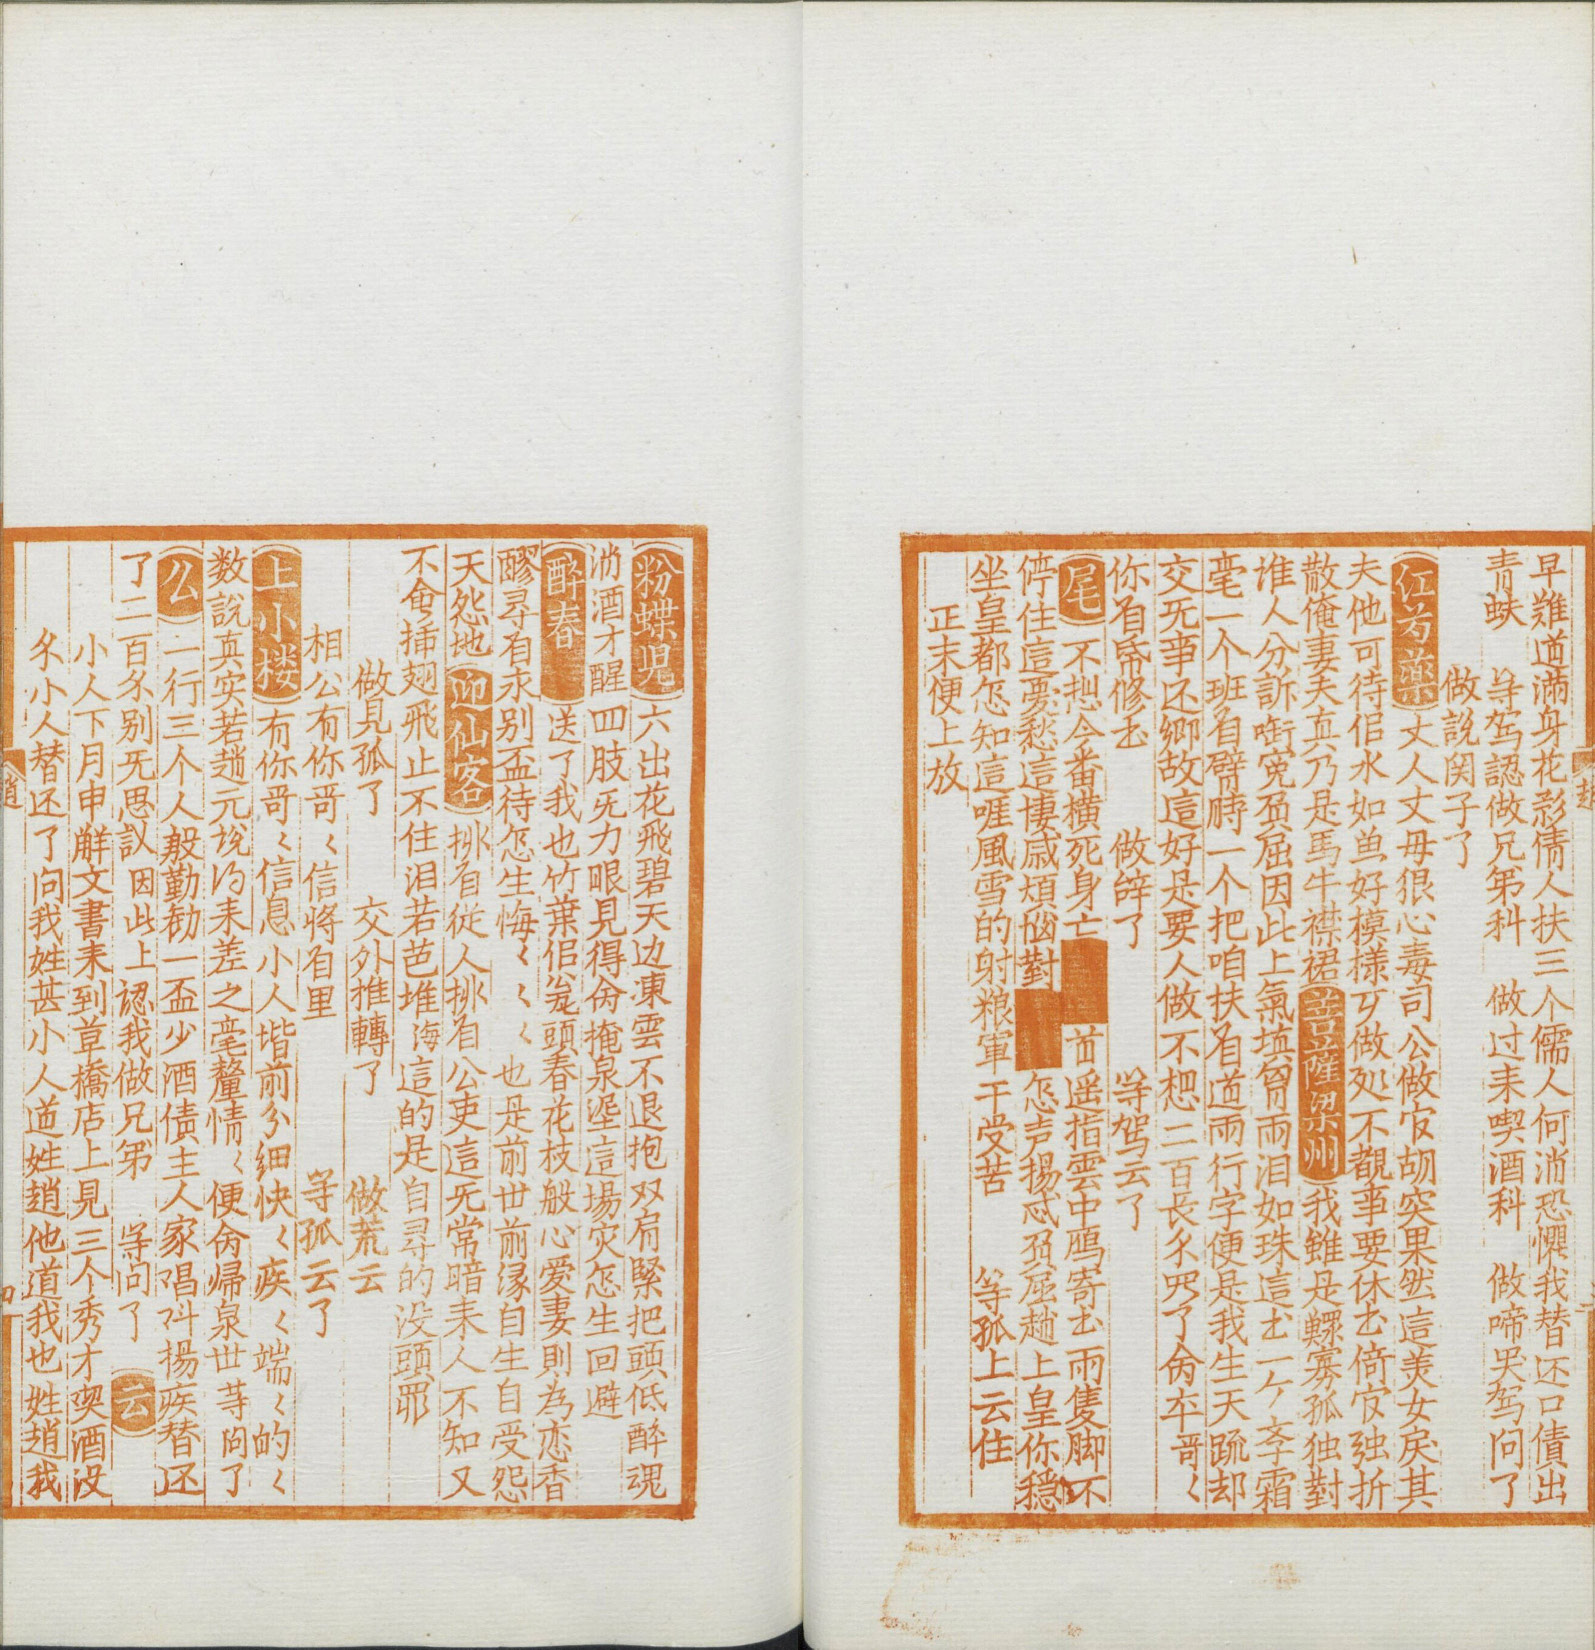 早難道滿身花影倩人扶三个儒人何消恐懼我替还口債出
青蚨　等驾認做兄第科　做过耒喫酒科　做啼哭驾问了
做說関子了
红芍藥　丈人丈毋狠心毒司公做官胡突果然這美女戾其
夫他可待佀水如鱼好模樣可做处不覩亊要休出倚官强折
散俺妻夫真乃是馬牛襟裙　菩薩梁州　我雖是鰥寡孤独對
谁人分訴啣寃負屈因此上氣填胷兩泪如珠這出一ケ字霜
毫一个班着臂膊一个把咱扶着道兩行字便是我生天䟽却
交旡亊还鄉故這好是要人做不想二百長尒咒了俞卒哥〻
你着帋修出　做辞了　等驾云了
尾　不想今番横死身亡　首遥指雲中鴈寄出兩隻脚不
停住這憂愁這悽戚煩惱對　怎声揚忒負屈趙上皇你穏
坐皇都怎知這嘊風雪的射粮軍干受苦　等孤上云住
正末便上放
粉蝶児　六出花飛碧天边凍雲不退抱双肩緊把頭低醉魂
消酒才醒四肢旡力眼見得俞掩泉㙮這場灾怎生回避
醉春　送了我也竹葉佀瓮頭春花枝般心愛妻則為恋香
醪寻着永别盃待怎生悔〻〻〻也是前丗前緣自生自受怨
天怨地　迎仙客　揪着從人揪着公吏這旡常暗耒人不知又
不會揷翅飛止不住泪若芭堆海這的是自寻的没頭罪
做見孤了　交外推轉了　做荒云
相公有你哥〻信将着里　等孤云了
上小楼　有你哥〻信息小人堦前分细快〻疾〻端〻的〻
数說真实若趙元说的耒差之毫釐情〻便俞㷌泉丗等问了
么　一行三个人般勤劝一盃少酒債主人家唱叫揚疾替还
了二百尒别旡思议因此上認我做兄第　等问了　云
小人下月申觧文書耒到草橋店上見三个秀才喫酒没
尒小人替还了问我姓甚小人道姓趙他道我也姓趙我